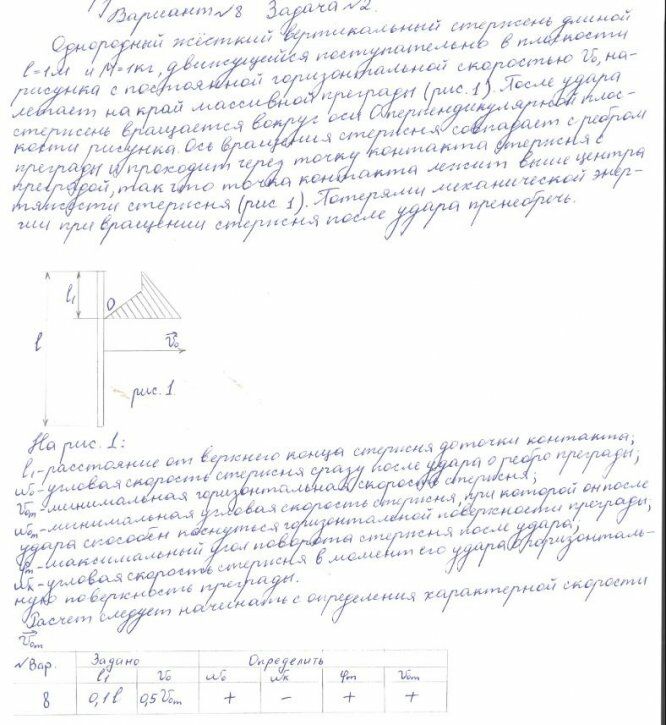 Вариант №8 Задача №2.
Однородный жёсткий вертикальный стержень длиной
l=1м и М=1кг, движущейся поступательно в плоскости
рисунка с постоянной горизонтальной скоростью V₀, на-
летает на край массивной преграды (рис. 1). После удара
стержень вращается вокруг оси О перпендикулярной плос-
кости рисунка. Ось вращения стержня совпадает с ребром
преграды и проходит через точку контакта стержня с
преградой, так что точка контакта лежит выше центра
тяжести стержня (рис 1). Потерями механической энер-
гии при вращении стержня после удара пренебречь.
l₁
O
l
V₀
рис. 1
На рис. 1:
l₁-расстояние от верхнего конца стержня до точки контакта;
ω₀-угловая скорость стержня сразу после удара о ребро преграды;
V₀m-минимальная горизонтальная скорость стержня;
ω₀m-минимальная угловая скорость стержня, при которой он после
удара способен коснуться горизонтальной поверхности преграды;
φm-максимальный угол поворота стержня после удара;
ωk-угловая скорость стержня в момент его удара о горизонталь-
ную поверхность преграды.
Расчет следует начинать с определения характерной скорости
V₀m
№Вар. Задано Определить
l₁ V₀ ω₀ ωk φm V₀m
8 0,1l 0,5V₀m + - + +